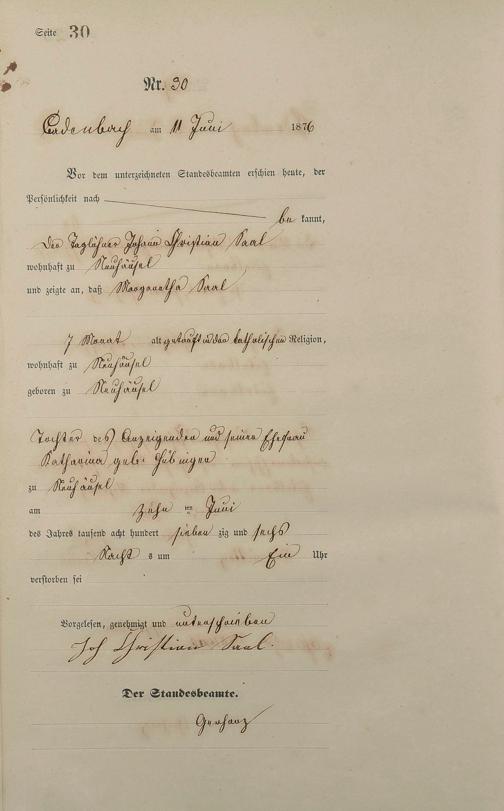 Seite 30
Nr. 30
Cadenbach am 11 Juni 1876
Vor dem unterzeichneten Standesbeamten erschien heute, der
Persönlichkeit nach
be kannt,
Der Taglöhner Johann Christian Saal
wohnhaft zu Neuhäusel
und zeigte an, daß Margaretha Saal
7 Monat alt getauft in der katholischen Religion,
wohnhaft zu Neuhäusel
geboren zu Neuhäusel
Tochter des Anzeigenden und seiner Ehefrau
Katharina geb. Hübinger
zu Neuhäusel
am zehn ten Juni
des Jahres tausend acht hundert sieben zig und sechs
Nacht s um Ein Uhr
verstorben sei
Vorgelesen, genehmigt und unterschrieben
Joh Christian Saal.
Der Standesbeamte.
Gerharz